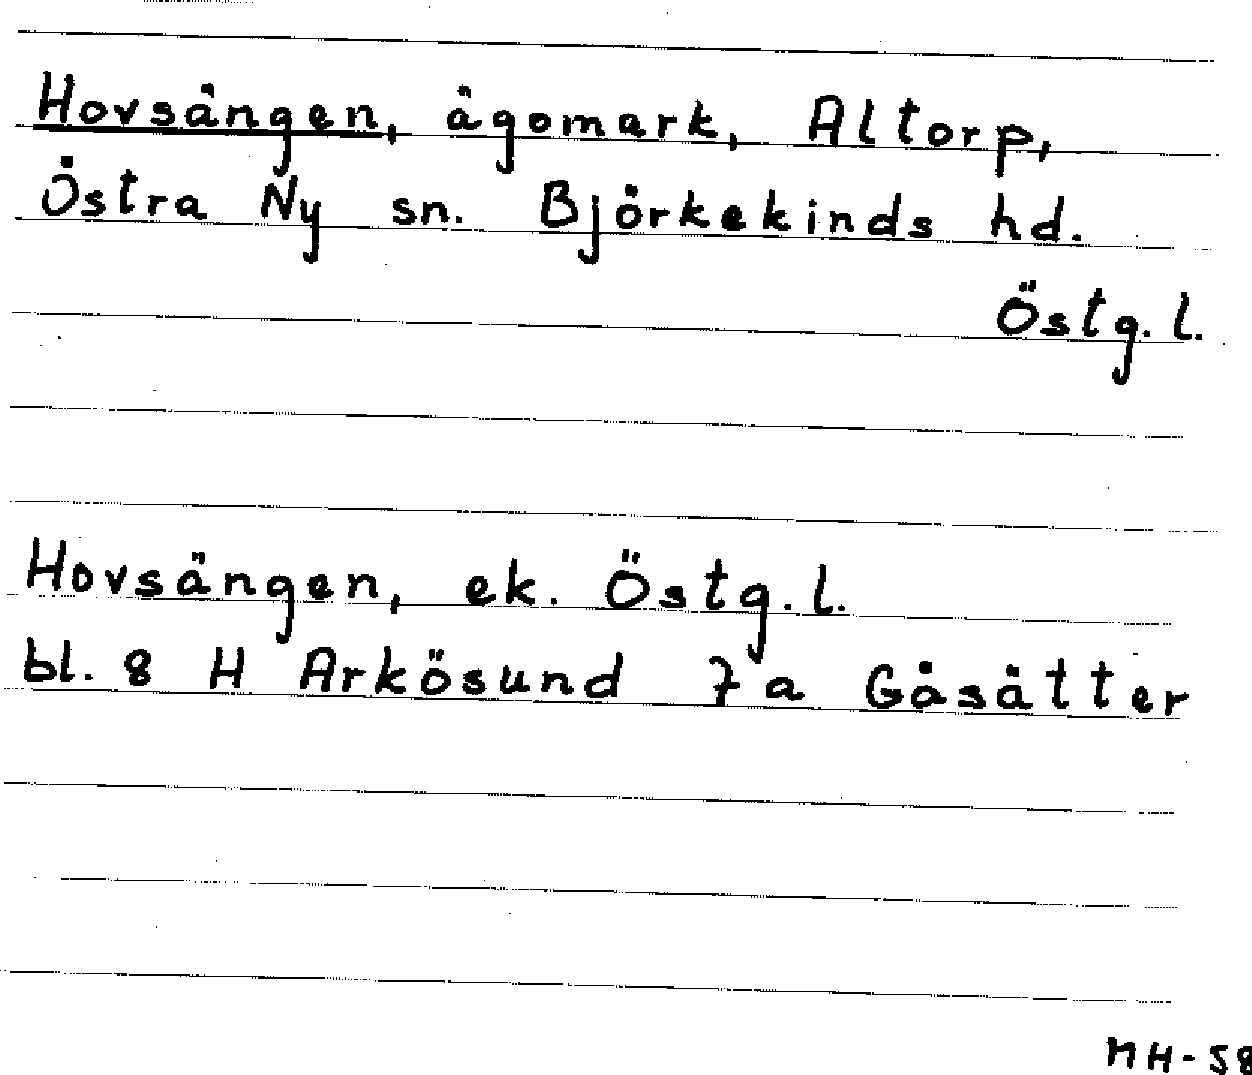 Hovsängen, ägomark, Altorp,
Östra Ny sn. Björkekinds hd.
Östg. l.
Hovsängen, ek. Östg. l.
bl. 8 H Arkösund 7 a Gåsätter
MH-58